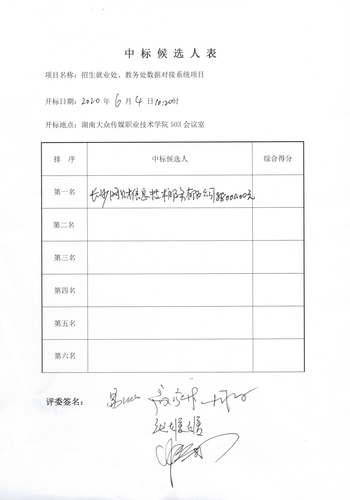 中标候选人表
项目名称：招生就业处、教务处数据对接系统项目
开标日期：2020 年 6 月 4 日 10:20时
开标地点：湖南大众传媒职业技术学院 503 会议室
排 序 中标候选人 综合得分
第一名 长沙 信息技术服务有限公司 88000.00元
第二名
第三名
第四名
第五名
第六名
评委签名：